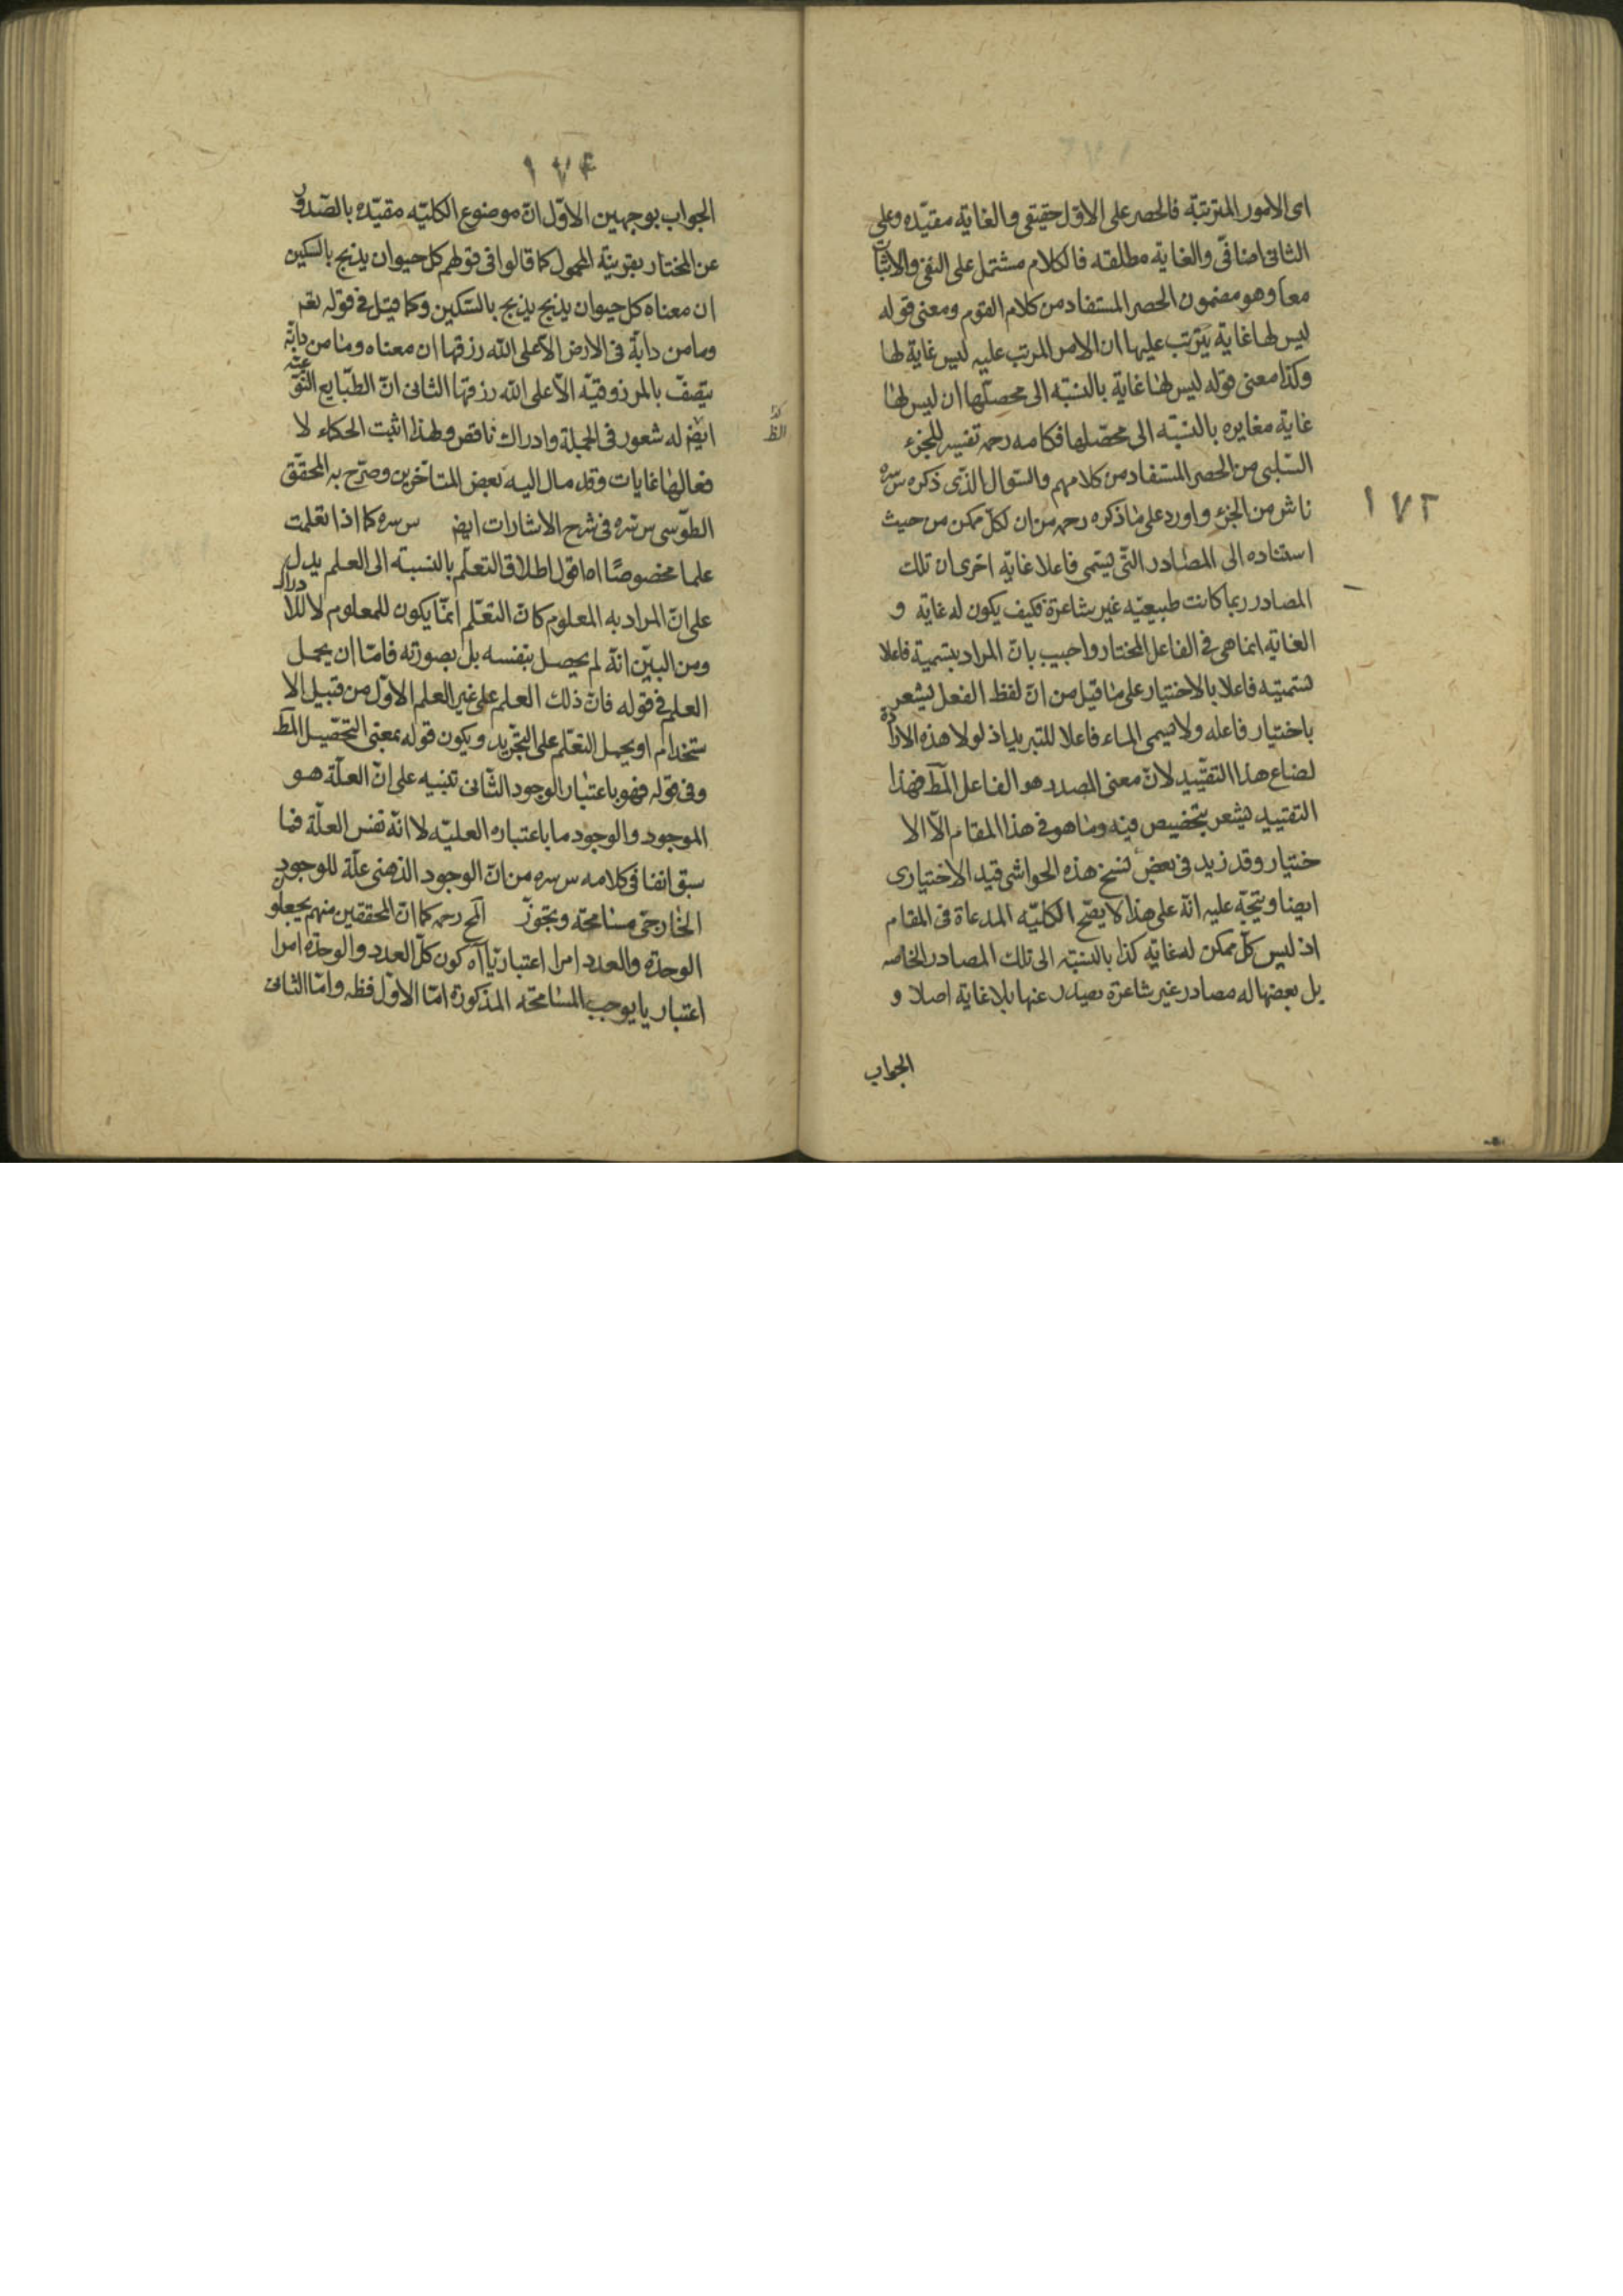 اى الامور المترتبة فالحصر على الاول حقيقى والغاية مقيّده وعلى
الثانى اضافى والغاية مطلقه فالكلام مشتمل على النفى والاثبات
معا وهو مضمون الحصر المستفاد من كلام القوم ومعنى قوله
ليس لها غاية يترتب عليها ان الامر المرتب عليه ليس غاية لها
وكذا معنى قوله ليس لها غاية بالنسبة الى محصلها ان ليس لها
غاية مغايره بالنسبة الى محصّلها فكلامه رحمه تفسير للجزء
السّلبى من الحصر المستفاد من كلامهم والسّوال الذى ذكره س سره
ناش من الجزء واورد على ما ذكره رحمه من ان لكلّ ممكن من حيث
استناده الى المصادر التّى يسمى فاعلا غاية اخرى ان تلك
المصادر ربما كانت طبيعيّه غير شاعرة فكيف يكون له غاية و
الغاية انما هى فى الفاعل المختار واجيب بانّ المراد بتسمية فاعلا
تسميته فاعلا بالاختيار على ما قيل من انّ لفظ الفعل يشعر
باختيار فاعله ولا يسمى الماء فاعلا للتبريد اذ لولا هذه الارادة
لضاع هذا التقييد لانّ معنى المصدر هو الفاعل المط فهذا
التقييد يشعر بتخصيص فيه وما هو فى هذا المقام الّا الا
ختيار وقد زيد فى بعض نسخ هذه الحواشى قيد الاختيارى
ايضا ويتجّه عليه انّه على هذا لا يصّح الكليّه المدعاة فى المقام
اذ ليس كلّ ممكن له غاية كذا بالنسبّة الى تلك المصادر الخاصه
بل بعضها له مصادر غير شاعرة يصدر عنها بلا غاية اصلا و
الجواب
١٧٢
١٧٤
الجواب بوجهين الاوّل انّ موضوع الكليّه مقيّده بالصّدور
عن المختار بقرينة المحمول كما قالوا فى قولهم كل حيوان يذبح بالسكين
ان معناه كل حيوان يذبح يذبح بالسّكين وكما قيل فى قوله تعم
وما من دابة فى الارض الّا على الله رزقها ان معناه وما من دابّة
يتّصف بالمرزوقيّه الّا على الله رزقها الثانى انّ الطبّايع النّوعيّه
ايض له شعور فى الجملة وادراك ناقص ولهذا اثبت الحكماء لا
فعالها غايات وقد مال اليه بعض المتأخّرين وصرّح به المحقّق
الطوّسى س سره فى شرح الاشارات ايض س سره كما اذا تعلمت
علما مخصوصًا اه اقول اطلاق التعلّم بالنسبة الى العلم يدل
على انّ المراد به المعلوم كان التعّلم انمّا يكون للمعلوم لا للادراك
ومن البيّن انّه لم يحصل بنفسه بل بصورته فامّا ان يحمل
العلم فى قوله فانّ ذلك العلم على غير العلم الاوّل من قبيل الا
ستخدام او يحمل التعّلم على التجّريد ويكون قوله بمعنى التحّصيل المط
وفى قوله فهو باعتبار الوجود الثّانى تنبيه على انّ العلّة هو
الموجود والوجود ما باعتباره العليّه لا انّه نفس العلّة فما
سبق انفا فى كلامه س سره من انّ الوجود الذهنى علّة للوجود
الخارجى مسامحة وتجوّز الم رحمه كما انّ المحققين منهم يجعلون
الوحدة والعدد امرا اعتباريّا اه كون كلّ العدد والوحدة امرا
اعتباريا يوجب المسامحة المذكورة امّا الاوّل فظه وامّا الثانى